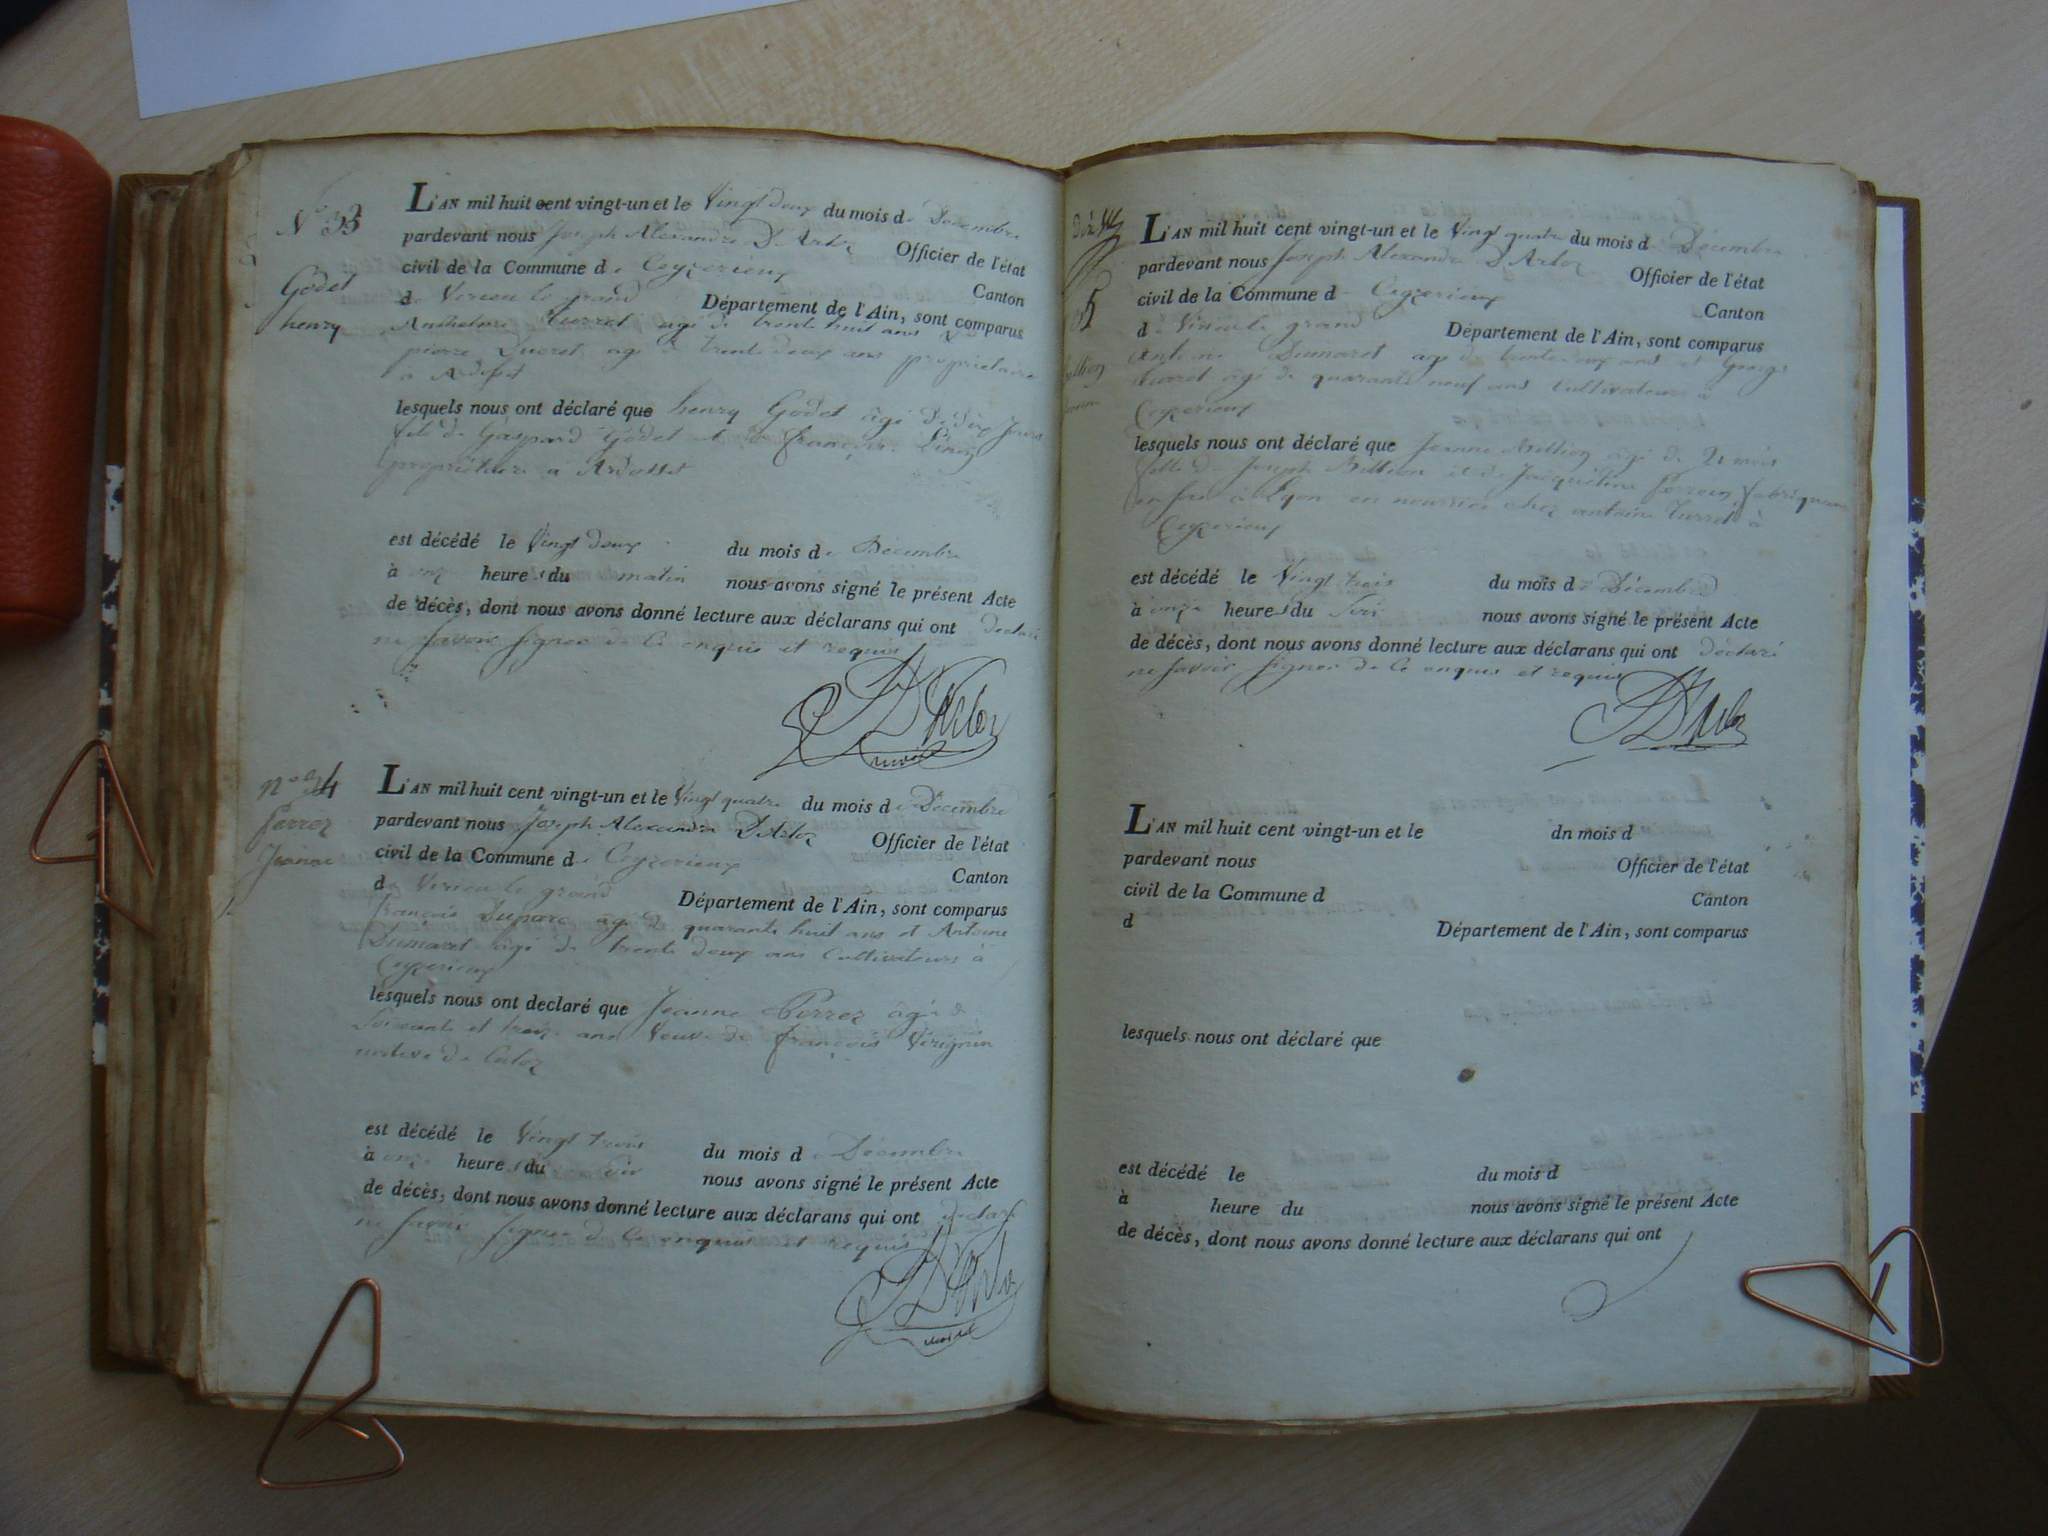 N° 33
Godet
henry
L'AN mil huit cent vingt-un et le Vingt deux du mois de Decembre
pardevant nous Joseph Alexandre D'Arloz Officier de l'état
civil de la Commune de Ceyzerieux Canton
de Virieu le grand Département de l'Ain, sont comparus
Anthelme turrel agé de trente huit ans
pierre Ducret agé de trente deux ans propriétaire
à Ardosset
lesquels nous ont déclaré que henry Godet âgé de dix jours
fils de Gaspard Godet et de françoise
propriétaire à Ardosset
est décédé le Vingt deux du mois de Décembre
à onze heures du matin nous avons signé le présent Acte
de décès, dont nous avons donné lecture aux déclarans qui ont declaré
ne savoir signer de ce enquis et requis
D'Arloz
n° 34
ferrez
Jeanne
L'AN mil huit cent vingt-un et le Vingt quatre du mois de Décembre
pardevant nous Joseph Alexandre D'Arloz Officier de l'état
civil de la Commune de Ceyzerieux Canton
de Virieu le grand Département de l'Ain, sont comparus
françois Duparc âgé de quarante huit ans et Antoine
Dumaret agé de trente deux ans Cultivateurs à
Ceyzerieux
lesquels nous ont declaré que Jeanne ferrez âgée de
Soixante et treize ans Veuve de françois Vérignin
native de Culoz
est décédé le Vingt trois du mois de Décembre
à onze heures du soir nous avons signé le présent Acte
de décès, dont nous avons donné lecture aux déclarans qui ont declaré
ne savoir signer de ce enquis et requis
D'Arloz
35
L'AN mil huit cent vingt-un et le Vingt quatre du mois de Décembre
pardevant nous Joseph Alexandre D'Arloz Officier de l'état
civil de la Commune de Ceyzerieux Canton
de Virieu le grand Département de l'Ain, sont comparus
Antoine Dumaret agé de trente deux ans et
turrel âgé de quarante neuf ans Cultivateurs à
Ceyzerieux
lesquels nous ont déclaré que Jeanne Million agé de 21 mois
fille de Joseph Million et de Jacqueline
à Lyon en nourrice chez antoine turrel à
Ceyzerieux
est décédé le Vingt trois du mois de Décembre
à onze heures du Soir nous avons signé le présent Acte
de décès, dont nous avons donné lecture aux déclarans qui ont déclaré
ne savoir signer de ce enquis et requis
D'Arloz
L'AN mil huit cent vingt-un et le dn mois d
pardevant nous Officier de l'état
civil de la Commune d Canton
d Département de l'Ain, sont comparus
lesquels nous ont déclaré que
est décédé le du mois d
à heure du nous avons signé le présent Acte
de décès, dont nous avons donné lecture aux déclarans qui ont